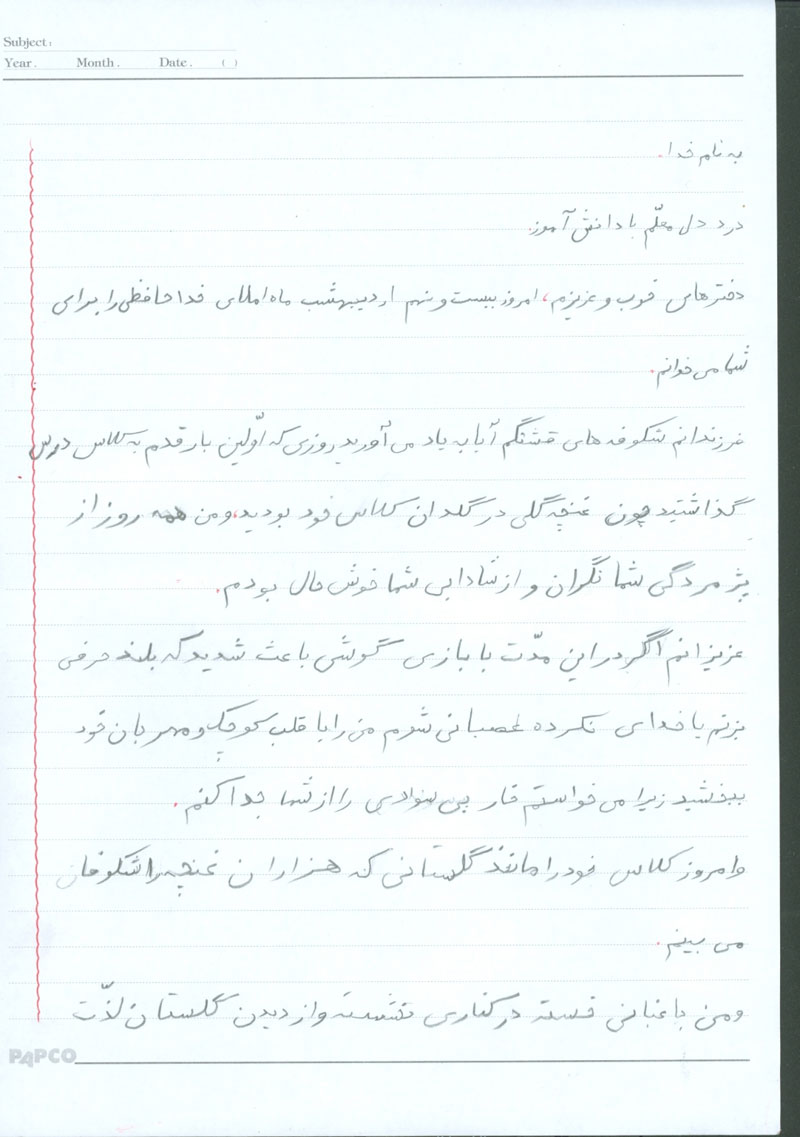 Subject:
Year. Month. Date. ( )
به نام خدا.
درد دل معلّم با دانش آموز.
دخترهای خوب و عزیزم، امروز بیست و نهم اردیبهشت ماه املای خداحافظی را برای
شما می خوانم.
فرزندانم شکوفه های قشنگم آیا به یاد می آورید روزی که اوّلین بار قدم به کلاس درس
گذاشتید چون غنچه گلی در گلدان کلاس خود بودید، و من همه روز از
پژمردگی شما نگران و از شادابی شما خوش حال بودم.
عزیزانم اگر در این مدّت با بازی گوشی باعث شدید که بلند حرفی
بزنم یا خدای نکرده عصبانی شوم من را با قلب کوچک و مهربان خود
ببخشید زیرا می خواستم خار بی سوادی را از شما جدا کنم.
و امروز کلاس خود را مانند گلستانی که هزاران غنچه را شکوفان
می بینم.
و من باغبانی خسته در کناری نشسته و از دیدن گلستان لذّت
PAPCO